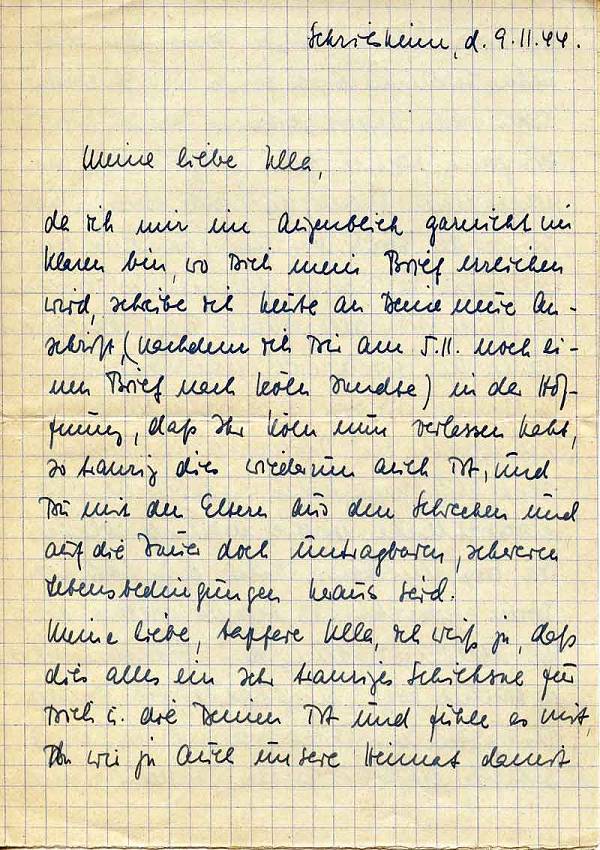 Schriesheim, d. 9.11.44.
Meine liebe Ulla,
da ich mir im Augenblick garnicht im
klaren bin, wo Dich mein Brief erreichen
wird, schreibe ich heute an Deine neue An-
schrift, (nachdem ich Dir am 5.11. noch ei-
nen Brief nach Köln sandte) in der Hof-
fnung, daß Ihr Köln nun verlassen habt,
so traurig dies wiederum auch ist, und
Du mit den Eltern aus den Schrecken und
auf die Dauer doch untragbaren, schweren
Lebensbedingungen heraus seid.
Meine liebe, tapfere Ulla, ich weiß ja, daß
dies alles ein sehr trauriges Schicksal für
Dich u. die Deinen ist und fühle es mit,
wie ja auch unsere Heimat damit